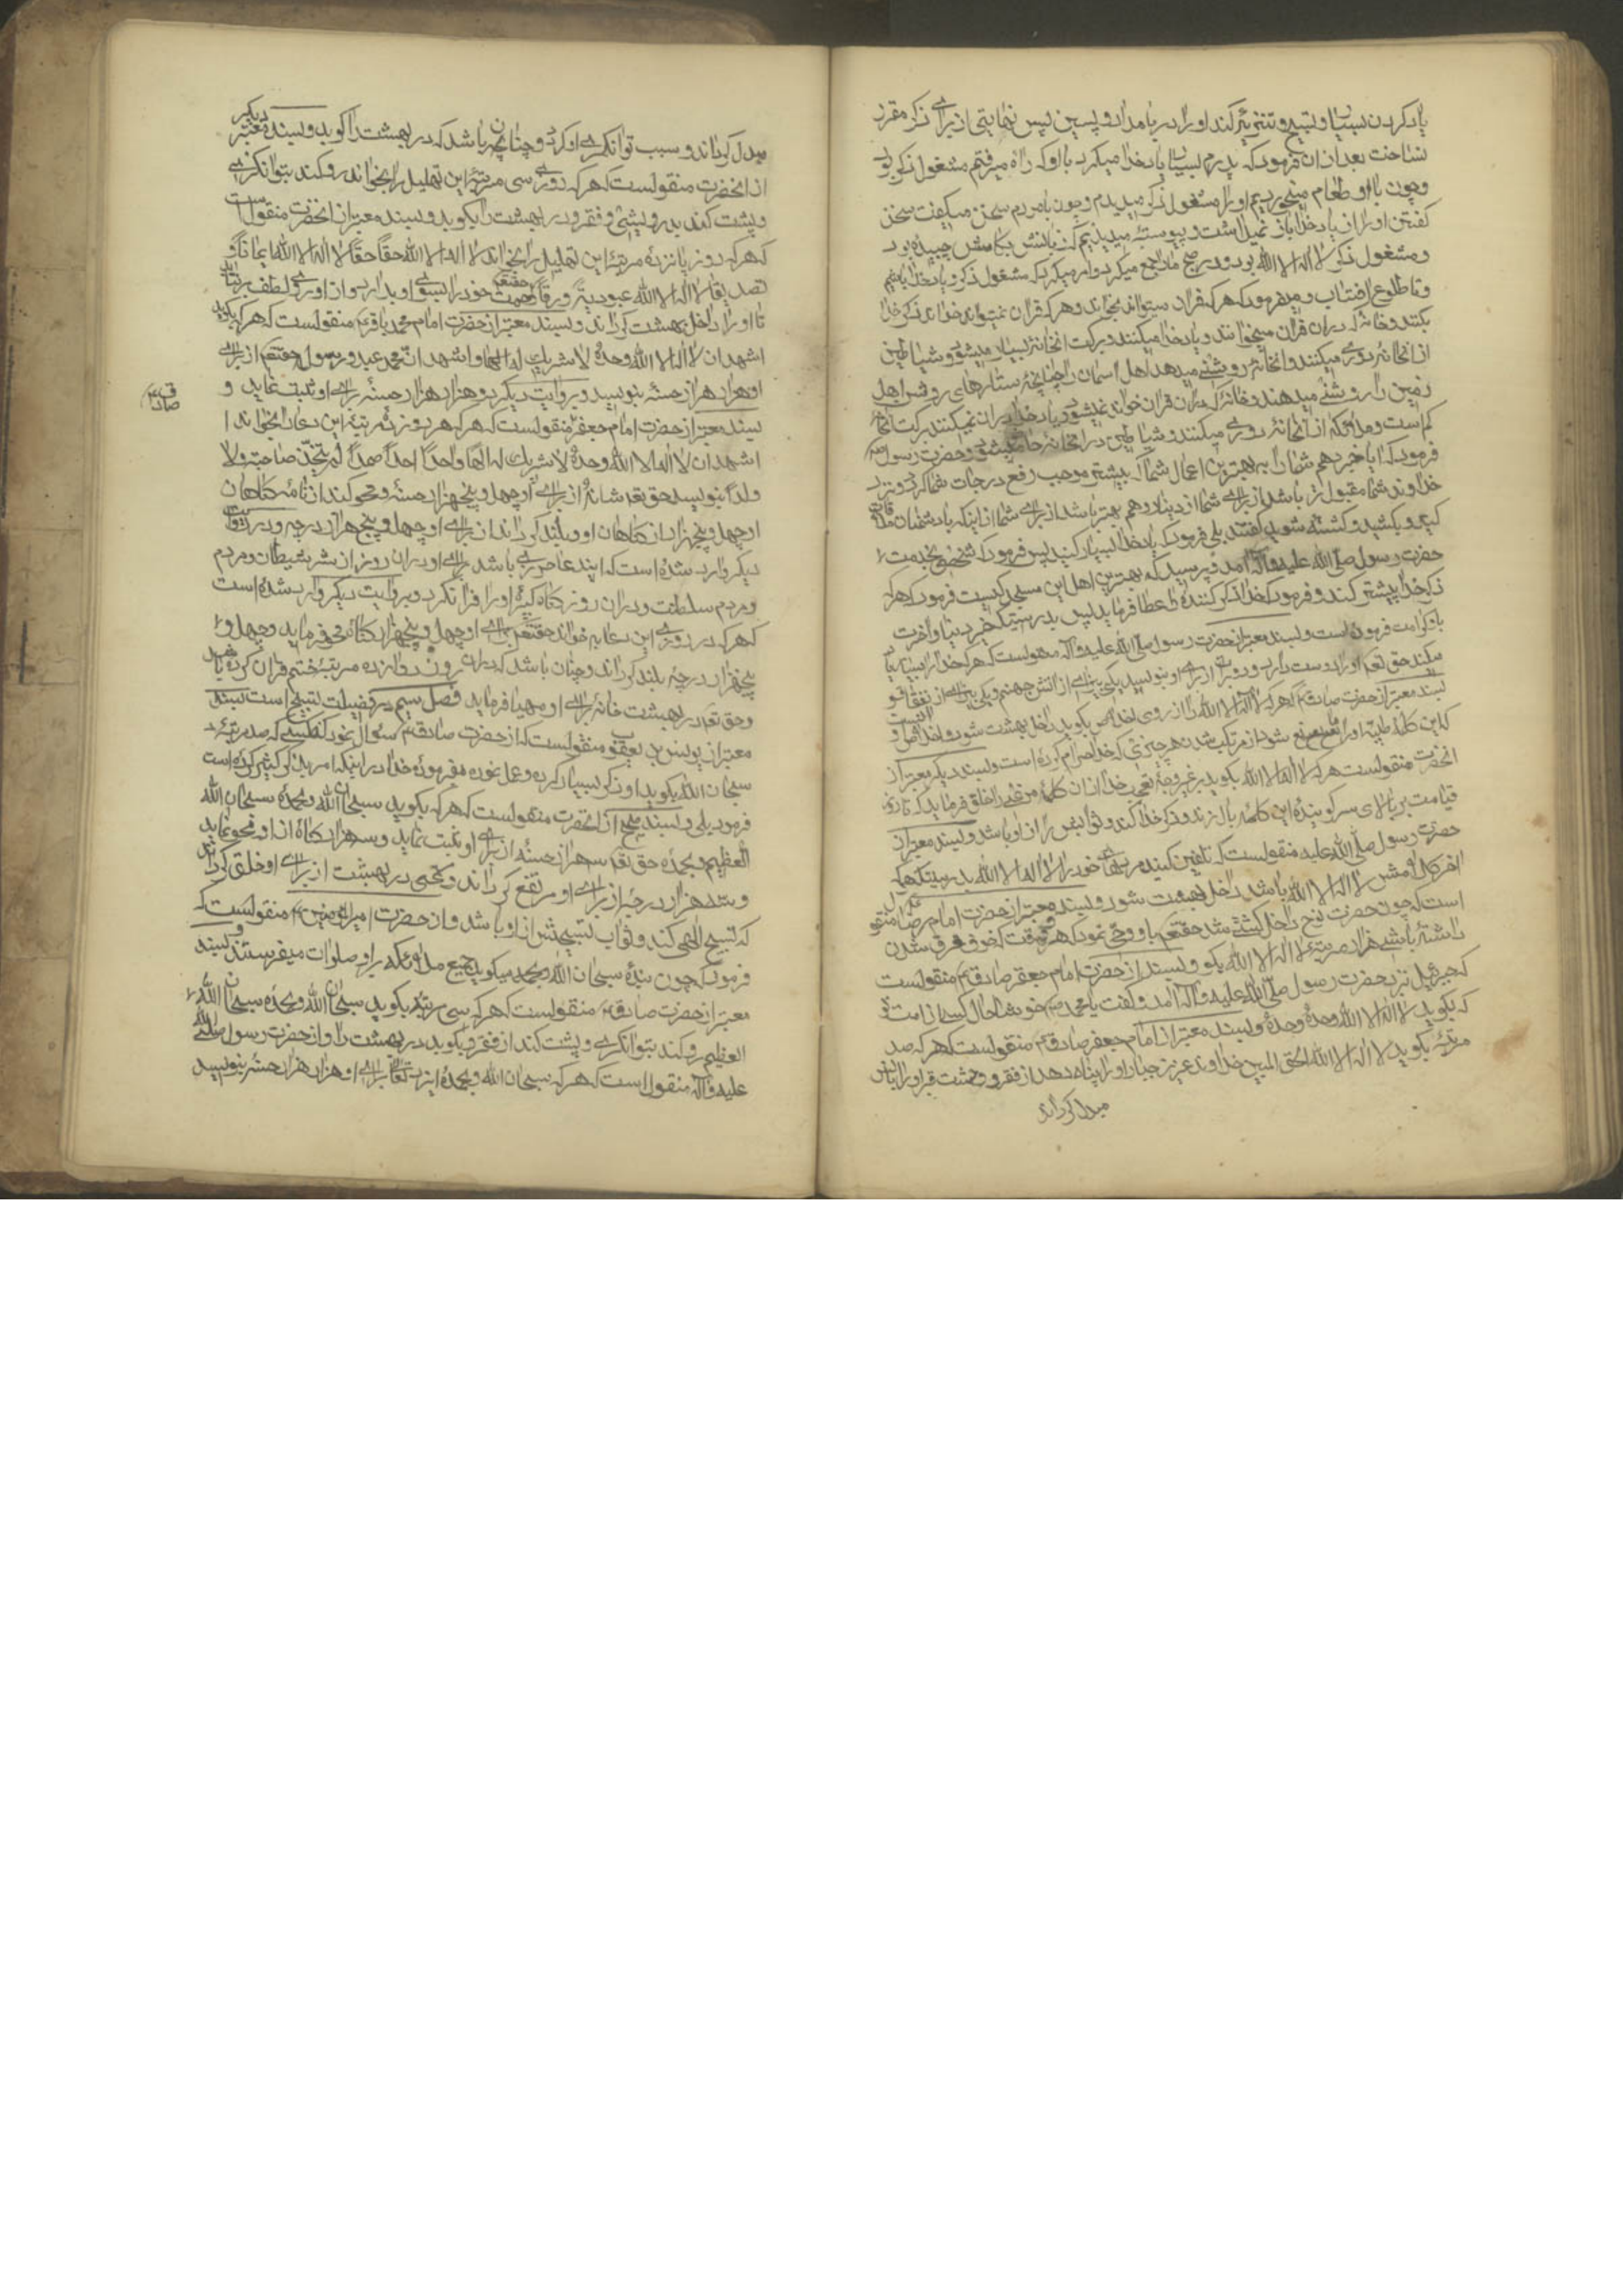 یاد کردن بسیار و تسبیح و تنزیه کند او را در بامداد و پسین پس نهایتی از برای ذکر مقرر
نساخت بعد از ان فرمود که پدرم بسیار یاد خدا میکرد با او که راه میرفتم مشغول ذکر بود
و چون با او طعام میخوردیم او را مشغول ذکر میدیدم و چون با مردم سخن میکفت سخن
کفتن او را از یاد خدا باز نمیداشت و پیوسته میدیدیم که زبانش بکامش چسپیده بود
و مشغول ذکر لا اله الا الله بود و در صبح ما را جمع میکرد و امر میکرد که مشغول ذکر و یاد خدا باشیم
و تا طلوع افتاب و میفرمود که هر که قران میتواند بخواند و هر که قران نمیتواند خواند ذکر خدا
بکند و خانهٔ که در ان قران میخوانند و یاد خدا میکنند برکت انخانه بسیار میشود و شیاطین
از انخانه دوری میکنند و انخانه روشنی میدهد اهل اسمان را چنانچه ستارهای روشن اهل
زمین را روشنی میدهند و خانهٔ که در ان قران خوانده نمیشود و یاد خدا در ان نمیکنند برکت انخانه
کم است و ملائکه از انخانه دوری میکنند و شیاطین در انخانه حاضر میشوند و حضرت رسول
فرمود که ایا خبر دهم شما را به بهترین اعمال شما که بیشتر موجب رفع درجات شما کردد و نزد
خداوند شما مقبول تر باشد از برای شما از دینار و درهم بهتر باشد از برای شما از اینکه با دشمنان ملاقات
کنید و بکشید و کشته شوید کفتند بلی فرمود که یاد خدا بسیار کنید پس فرمود که شخصی بخدمت
حضرت رسول صلی الله علیه و آله آمد و پرسید که بهترین اهل این مسجد کیست فرمود که هر که
ذکر خدا بیشتر کند و فرمود که خدا ذکر کننده عطا فرماید پس بدرستیکه خیر دنیا و آخرت
باو کرامت فرموده است و بسند معتبر از حضرت رسول صلی الله علیه و آله منقولست که هر که خدا را بسیار یاد
میکند حق تعم او را دوست دارد و دو برات از برای او بنویسد یکی بیزاری از اتش جهنم و یکی بیزاری از نفاق و
بسند معتبر از حضرت صادقع که هر که لا اله الا الله را از روی اخلاص بکوید داخل بهشت شود و اخلاص او انست
که این کلمهٔ طیبه او را مانع شود از مرتکب شدن هر چیزی که خدا حرام کرده است و بسند دیکر معتبر از
انحضرت منقولست هر که لا اله الا الله بکوید خدا از ان کلمه مرغی را خلق فرماید که تا روز
قیامت بر بالای سر کویندهٔ این کلمه بال زند و ذکر خدا کند و ثوابش از ان او باشد و بسند معتبر از
حضرت رسول صلی الله علیه منقولست که تلقین کنید مردهای خود را لا اله الا الله بدرستیکه هر که
اخر کلامش لا اله الا الله باشد داخل بهشت شود و بسند معتبر از حضرت امام رضا منقول
است که چون حضرت نوح داخل کشتی شد حقتعم باو وحی نمود که هر وقت که خوف غرق شدن
داشته باشی هزار مرتبه لا اله الا الله بکو و بسند از حضرت امام جعفر صادقع منقولست
که جبرئیل نزد حضرت رسول صلی الله علیه و اله آمد و کفت یا محمد خوشا حال کسی از امت تو
که بکوید لا اله الا الله وحدهٔ وحدهٔ و بسند معتبر از امام جعفر صادقع منقولست که هر که صد
مرتبه بکوید لا اله الا الله الحق المبین خداوند عزیز جبار او را پناه دهد از فقر و وحشت قبر او را بانس
مبدل کرداند
مبدل کرداند و سبب توانکری او کردد و چنان باشد که در بهشت را کوبد و بسند معتبر دیکر
از انحضرت منقولست که هر که روزی سی مرتبه این تهلیل را بخواند رو کند بتوانکری
و پشت کند بدرویشی و فقر و در بهشت را بکوبد و بسند معتبر از انحضرت منقولست
که هر که روز پانزده مرتبه این تهلیل را بخواند لا اله الا الله حقاً حقاً لا اله الا الله ایماناً و
تصدیقاً لا اله الا الله عبودیة و رقاً حقتعم رحمت خود را بسوی او بدارد و از او روی لطف برنتابد
تا او را داخل بهشت کرداند و بسند معتبر از حضرت امام محمد باقرع منقولست که هر که بکوید
اشهد ان لا اله الا الله وحدهٔ لا شریک له الها و اشهد ان محمد عبده و رسوله حقتعم از برای
او هزار هزار حسنه بنویسد و بروایت دیکر دو هزار هزار حسنه برای او ثبت نماید و
بسند معتبر از حضرت امام جعفر منقولست که هر که هر روز ده مرتبه این دعا را بخواند ا
صادقع
اشهد ان لا اله الا الله وحدهٔ لا شریک له الها واحداً احداً صمداً لم یتخذ صاحبة و لا
ولداً بنویسد حق تعم شانه از برای او چهل و پنجهزار حسنه و محو کند از نامهٔ کناهان
او چهل و پنجهزار از کناهان او و بلند کرداند از برای او چهل و پنج هزار درجه و در روایت
دیکر وارد شده است که باشد برای او در ان روز از شر شیطان و مردم
و در ان روز کناه کبیرهٔ او را فرا نکیرد و بروایت دیکر وارد شده است
که هر که در روزی این دعا به خواند حقتعم برای او چهل و پنجهزار کناه محو فرماید و چهل و
پنجهزار درجه بلند کرداند و چنان باشد که در ان روز دوازده مرتبه ختم قران کرده باشد
و حق تعم در بهشت خانه برای او مهیا فرماید فصل سیم در فضیلت تسبیح است بسند
معتبر از یونس بن یعقوب منقولست که از حضرت صادقع سؤال نمود که کسی که صد مرتبه
سبحان الله بکوید او ذکر بسیار کرده و عمل نموده بفرمودهٔ خدا در اینکه امر بذکر کثیر کرده است
فرمود بلی و بسند صحیح از انحضرت منقولست که هر که بکوید سبحان الله و بحمدهٔ سبحان الله
العظیم و بحمدهٔ حق تعم سه هزار حسنه از برای او ثبت نماید و سه هزار کناه از او محو نماید
و سه هزار درجه از برای او مرتفع کرداند و مرغی در بهشت از برای او خلق کرداند
که تسبیح الهی کند و ثواب تسبیحش از او باشد و از حضرت امیرالمؤمنین منقولست که
فرمود که چون بندهٔ سبحان الله و بحمدهٔ میکوید جمیع ملائکه بر او صلوات میفرستند و بسند
معتبر از حضرت صادقع منقولست که هر که سی مرتبه بکوید سبحان الله و بحمدهٔ سبحان الله
العظیم رو کند بتوانکری و پشت کند از فقر و بکوبد در بهشت را و از حضرت رسول صلی الله
علیه و آله منقول است که هر که سبحان الله و بحمدهٔ ایزد تعالی برای او هزار هزار حسنه بنویسد